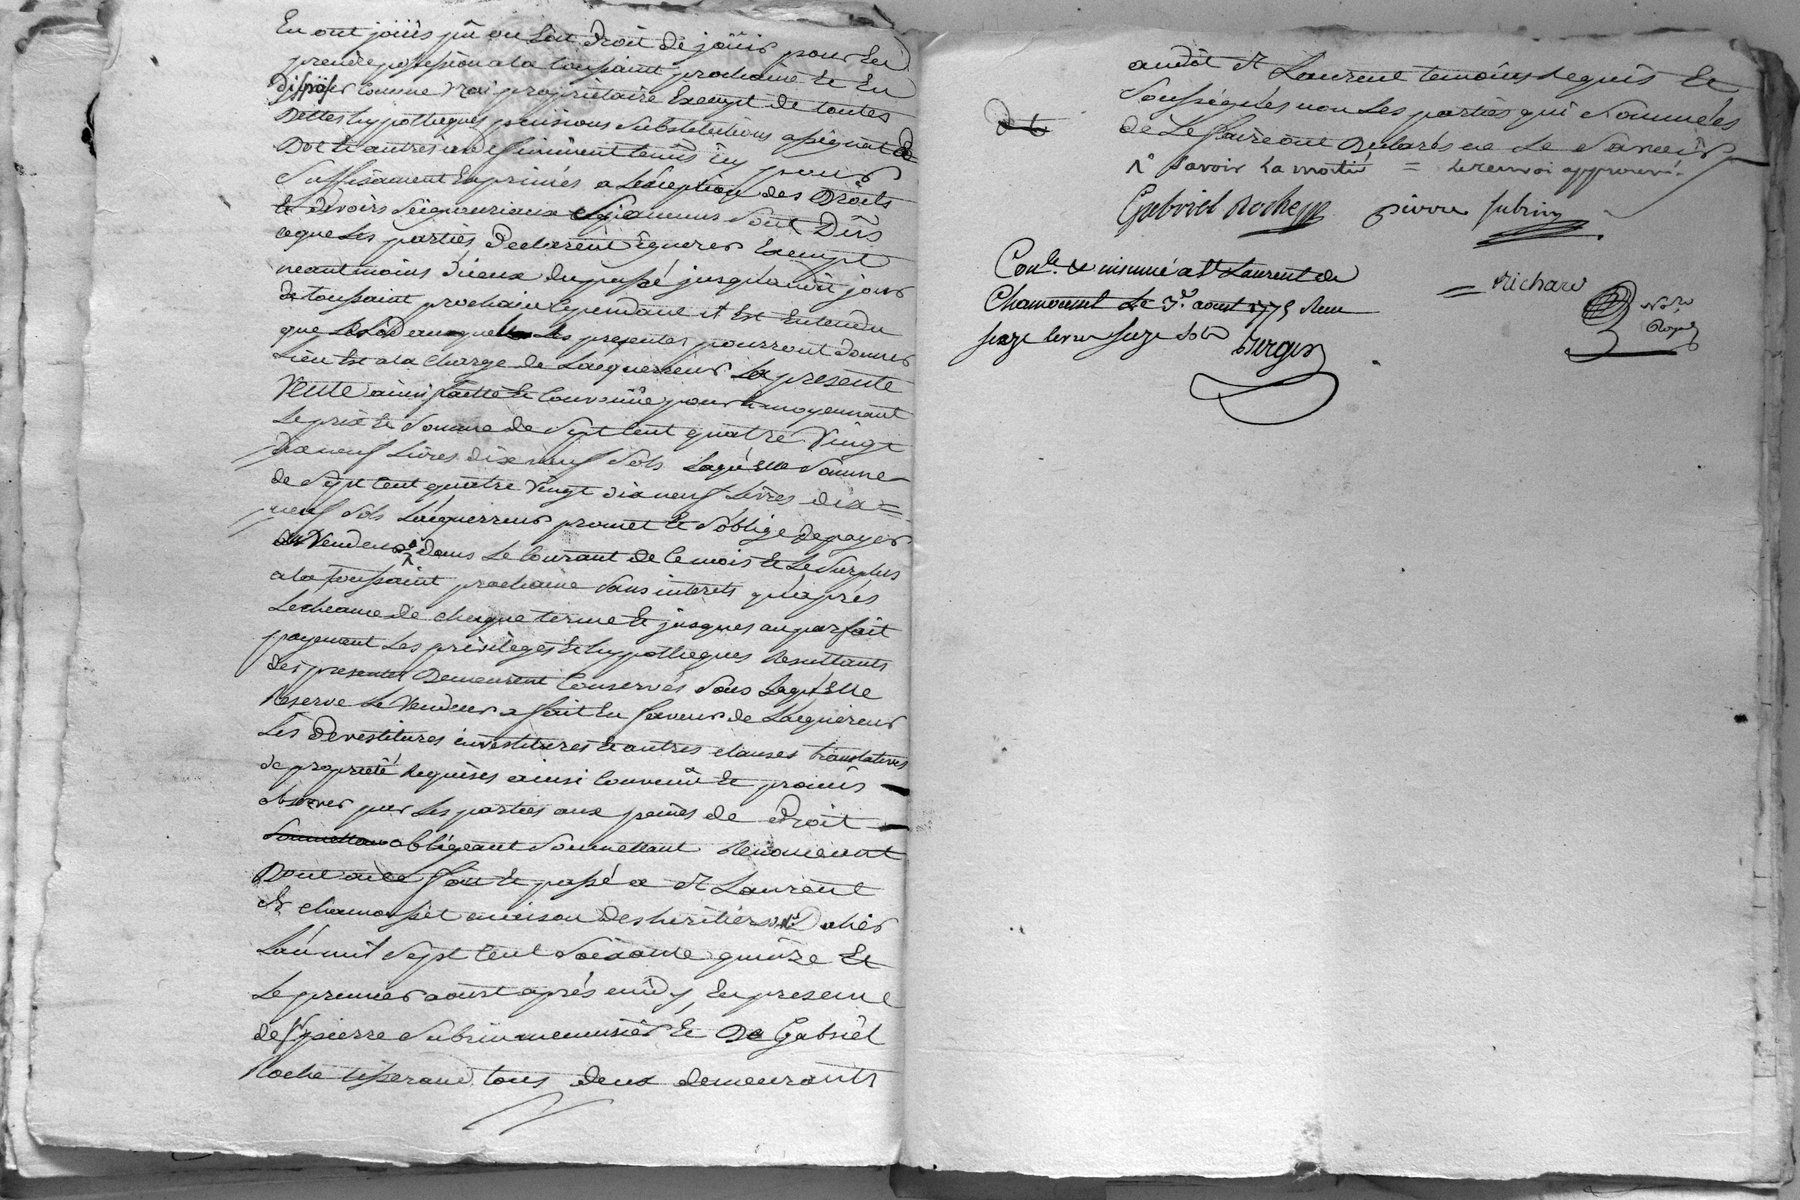 En ont joüis pû ou sçu droit de joüir pour En
prendre possession a la toussaint prochaine Et En
disposer Comme vrai proprietaire Exempt de toutes
dettes hypotheques pensions substitutions assignat de
Dot Et autres
suffisament Exprimés a L'exception des Droits
Et devoirs seigneuriaux
ce que Les parties declarent ignorer Exempt
neantmoins d'iceux du passé jusqu'audit jour
de toussaint prochain Cependant il Est Entendu
que Les Lods auxquels Les presentes pourront donner
Lieu Est a la Charge de L'acquereur La presente
Vente ainsi faitte Et Convenüe pour Et moyennant
Le prix Et Somme de Sept Cent quatre Vingt
dix neuf Livres dix neuf sols Laquelle somme
de Sept Cent quatre Vingt dix neuf Livres dix=
neuf sols L'acquerreur promet Et s'oblige de payer
au Vendeur ^ dans Le Courant de Ce mois Et Le surplus
a la toussaint prochaine sans interets qu'après
L'echeance de chaque terme Et jusques au parfait
payement Les privileges Et hypotheques Resultants
des presentes Demeurent Conservés sous Laquelle
Reserve Le Vendeur a fait En faveur de L'acquereur
Les devestitures investitures Et autres clauses translatives
de propriété Requises ainsi Convenu Et promis
observer par Les parties aux peines de Droit
obligeant soumettant Renonceant
Dont acte fait Et passé a St Laurent
de chamousset maison des heritiers
L'an mil Sept Cent Soixante quinze Et
Le premier aoust après midy, En presence
de Sr pierre subrin menuisier Et De Gabriel
Roche tisserand tous deux demeurants
audit St Laurent temoins Requis Et
soussignés non Les parties qui sommées
de Le faire ont Declarés ne Le savoir
^ savoir La moitié = Le renvoi approuvé.
Gabriel Roche pierre subrin
Conlé & insinué a St Laurent de
Chamousset Le 3e. aout 1775 Reçu
seize livres seize sols Berger
= Richard
Nore
Royal